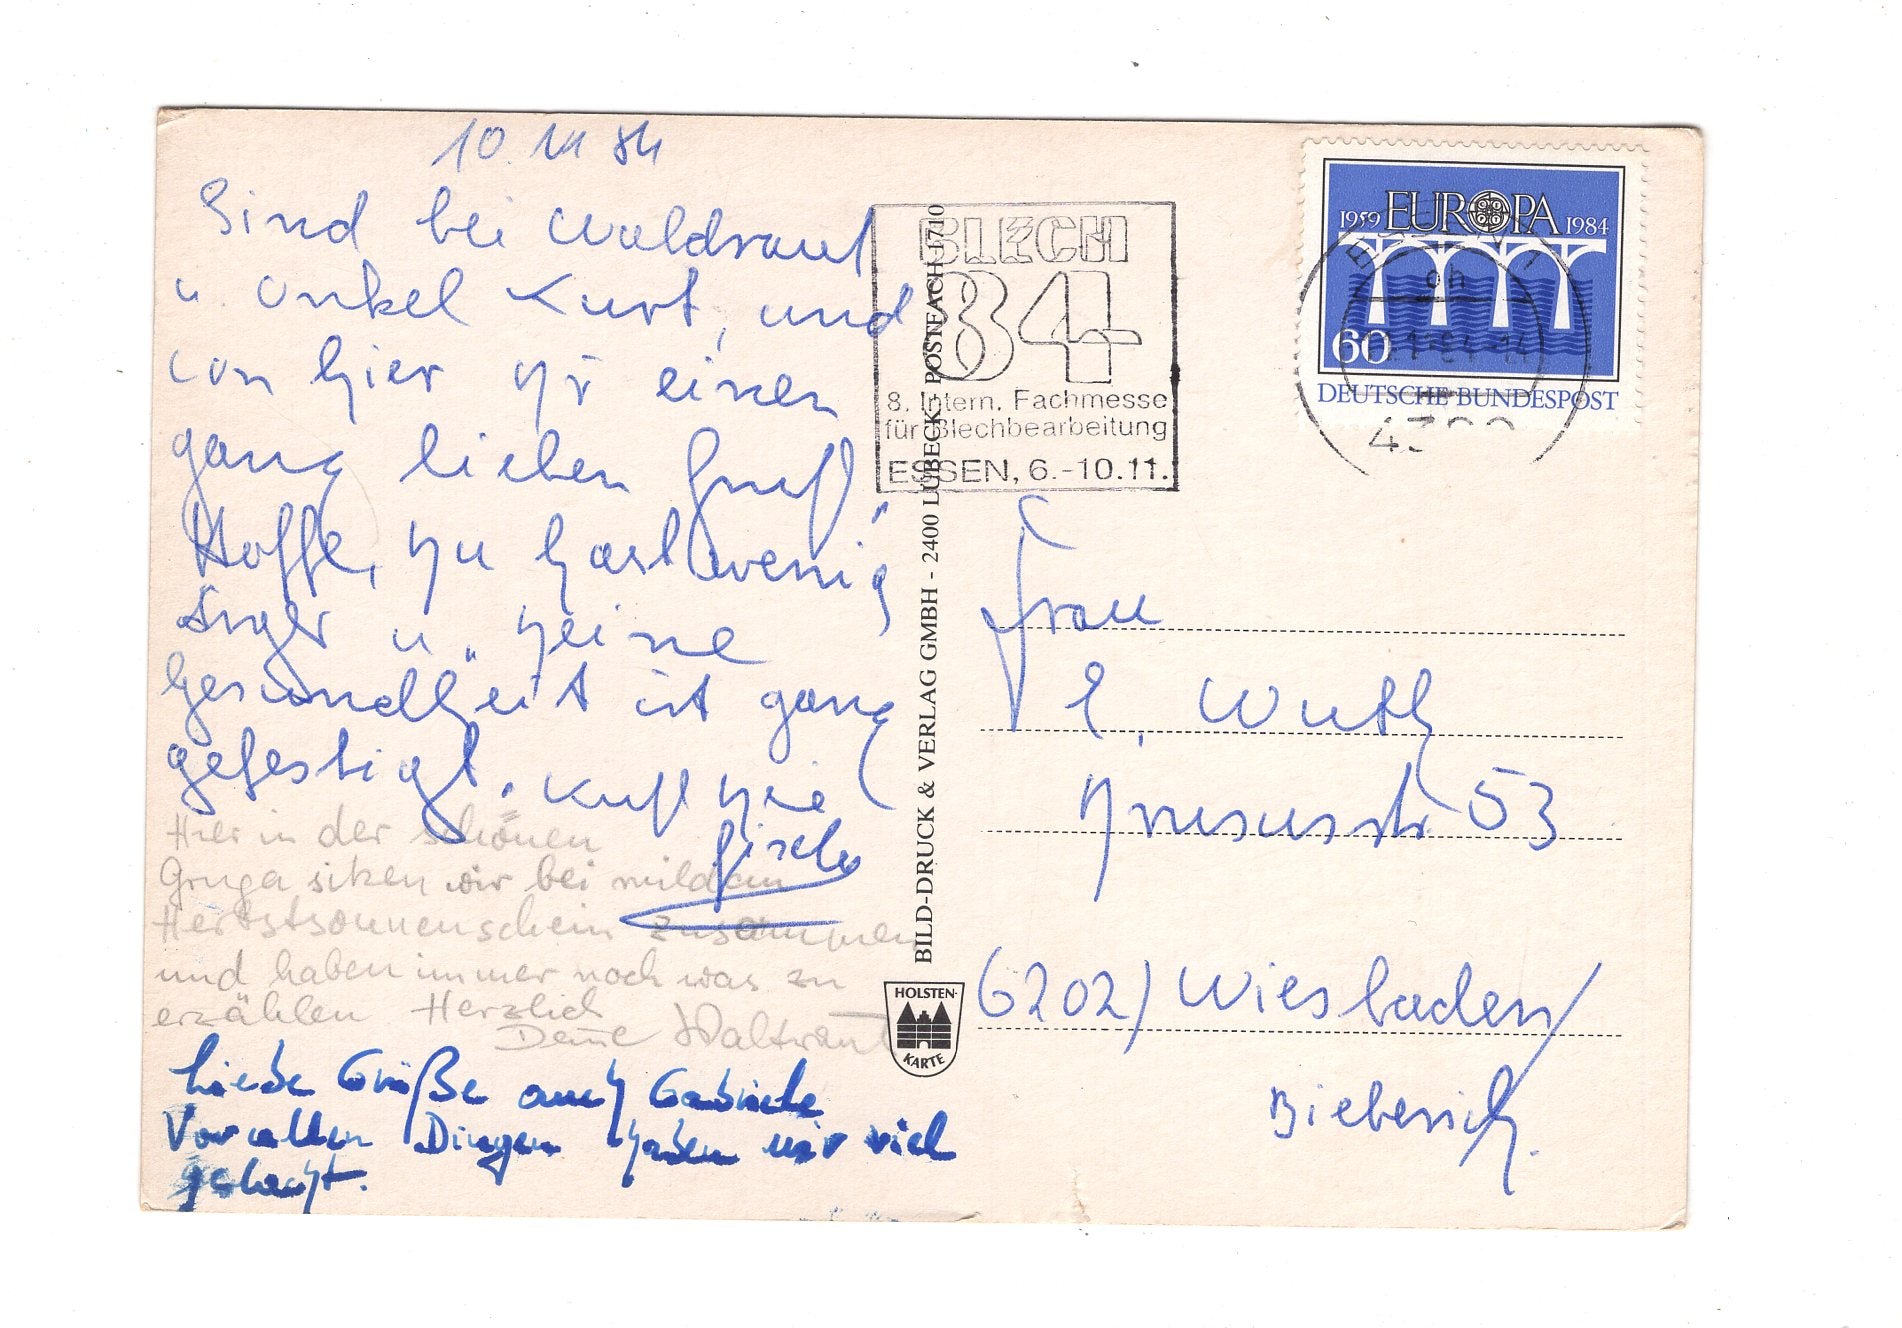 10.11.84
Sind bei Waldraut
u. Onkel Kurt, und
von hier Dir einen
ganz lieben Gruß,
Hoffe, Du hast wenig
Ärger u. Deine
Gesundheit ist ganz
gefestigt. Kuß Die
Gisela
Hier in der schönen
Gruga sitzen wir bei mildem
Herbstsonnenschein zusammen
und haben immer noch was zu
erzählen Herzlich
Deine Waltraut
Liebe Grüße auch Gabriele
Vor allen Dingen haben wir viel
gelacht.
BILD-DRUCK & VERLAG GMBH - 2400 LÜBECK - POSTFACH 1710
HOLSTEN-
KARTE
BLECH
84
8. Intern. Fachmesse
für Blechbearbeitung
ESSEN, 6.-10.11.
1959 EUROPA 1984
60
DEUTSCHE BUNDESPOST
ESSEN 1
oh
Frau
E. Wuth
Drususstr. 53
6202) Wiesbaden/
Bieberich.